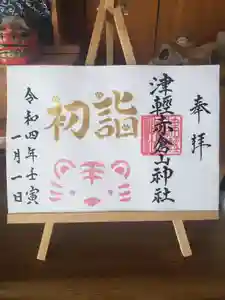 奉拝
津輕赤倉山神社
初詣
令和四年壬寅
一月一日